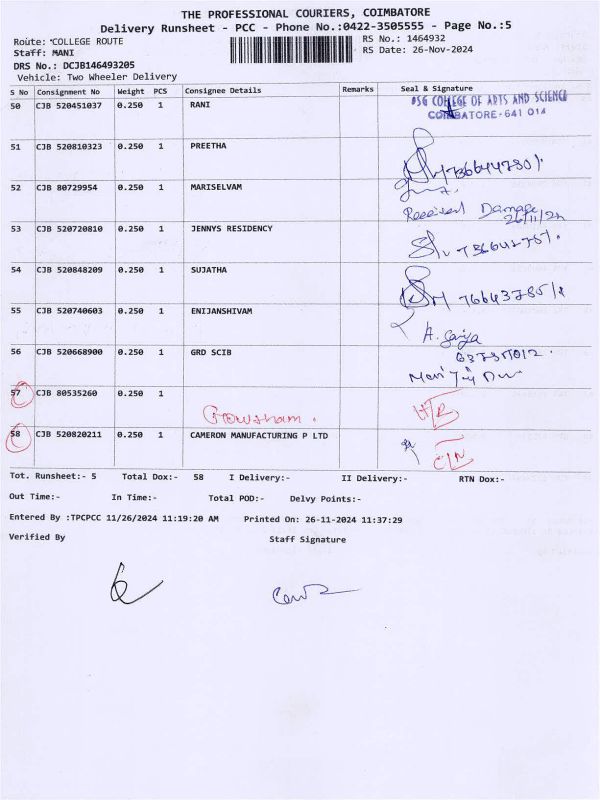 THE PROFESSIONAL COURIERS, COIMBATORE
Delivery Runsheet - PCC - Phone No.:0422-3505555 - Page No.:5
Route: *COLLEGE ROUTE
RS No.: 1464932
Staff: MANI
RS Date: 26-Nov-2024
DRS No.: DCJB146493205
Vehicle: Two Wheeler Delivery
S No Consignment No Weight PCS Consignee Details Remarks Seal & Signature
50 CJB 520451037 0.250 1 RANI
PSG COLLEGE OF ARTS AND SCIENCE
COIMBATORE-641 014
51 CJB 520810323 0.250 1 PREETHA
52 CJB 80729954 0.250 1 MARISELVAM
Received Damage
26/11/24
53 CJB 520720810 0.250 1 JENNYS RESIDENCY
54 CJB 520848209 0.250 1 SUJATHA
55 CJB 520740603 0.250 1 ENIJANSHIVAM
56 CJB 520668900 0.250 1 GRD SCIB
57 CJB 80535260 0.250 1
Gowsham.
58 CJB 520820211 0.250 1 CAMERON MANUFACTURING P LTD
Tot. Runsheet:- 5 Total Dox:- 58 I Delivery:- II Delivery:- RTN Dox:-
Out Time:- In Time:- Total POD:- Delvy Points:-
Entered By :TPCPCC 11/26/2024 11:19:20 AM Printed On: 26-11-2024 11:37:29
Verified By Staff Signature